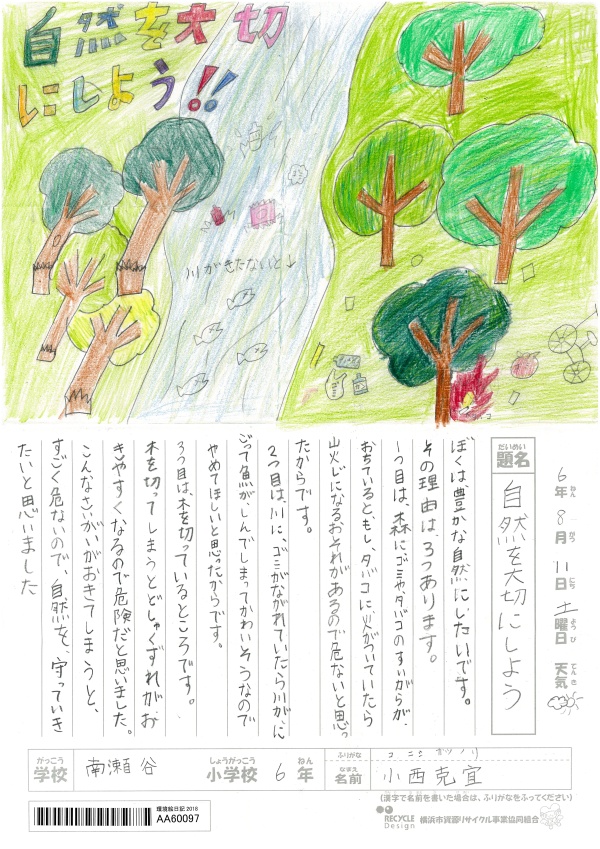 自然を大切
にしよう!!
川がきたないと↓
6年8月11日土曜日 天気
ねん がつ にち ようび てんき
だいめい
題名 自然を大切にしよう
ぼくは豊かな自然にしたいです。
その理由は、3つあります。
1つ目は、森に、ゴミやタバコのすいがらが、
おちていると、もしタバコに火がついていたら
山火じになるおそれがあるので危ないと思っ
たからです。
2つ目は、川に、ゴミがながれていたら川がに
ごって魚がしんでしまってかわいそうなので
やめてほしいと思ったからです。
3つ目は、木を切っているところです。
木を切ってしまうとどしゃくずれが、お
きやすくなるので危険だと思いました。
こんなさいがいがおきてしまうと、
すごく危ないので、自然を、守っていき
たいと思いました
がっこう しょうがっこう ねん ふりがな コニシ カツノリ
学校 南瀬谷 小学校 6年 なまえ 名前 小西克宜
(漢字で名前を書いた場合は、ふりがなをふってください)
環境絵日記2018
AA60097
RECYCLE Design 横浜市資源リサイクル事業協同組合